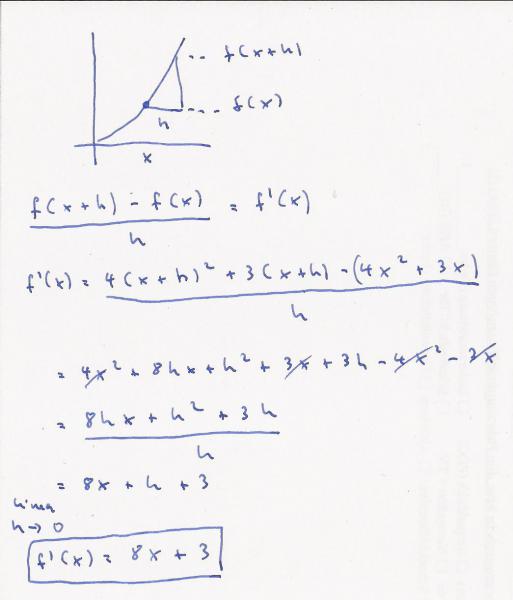 f(x+h)
f(x)
h
x
f(x+h) - f(x) / h = f'(x)
f'(x) = 4(x+h)² + 3(x+h) - (4x² + 3x) / h
= 4x² + 8hx + h² + 3x + 3h - 4x² - 3x
= 8hx + h² + 3h / h
= 8x + h + 3
h → 0
f'(x) = 8x + 3